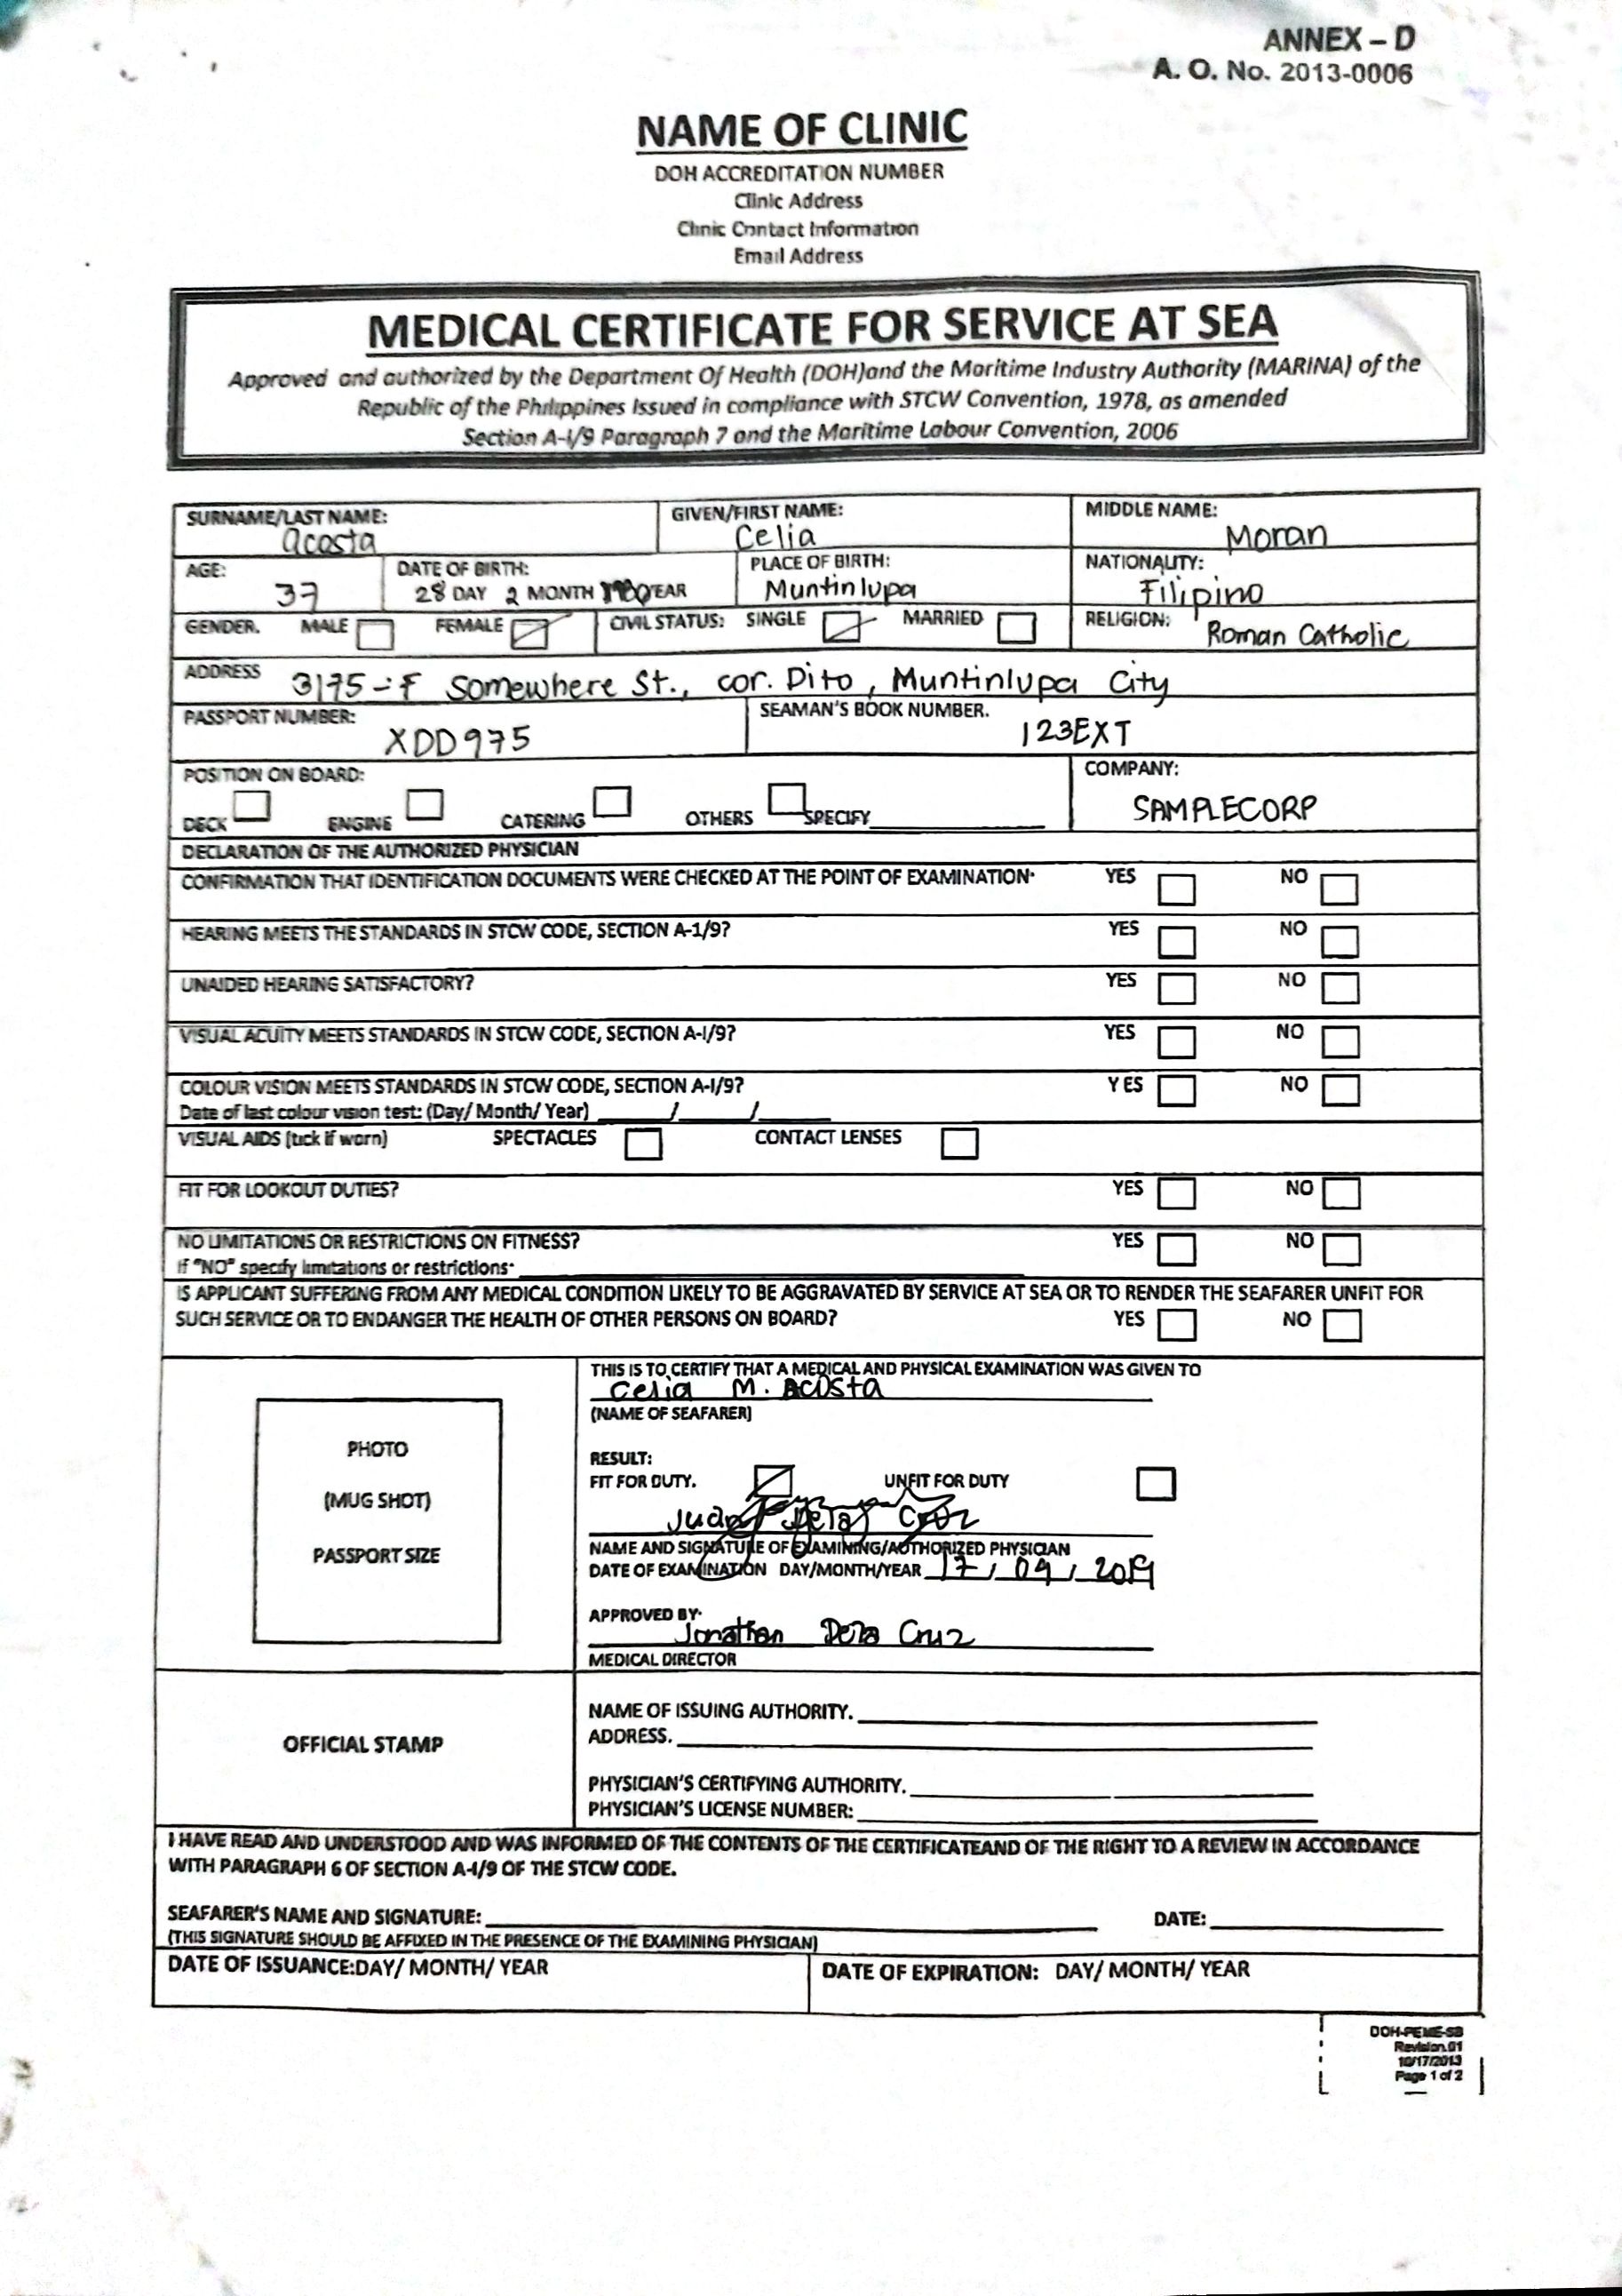 ANNEX – D
A. O. No. 2013-0006
NAME OF CLINIC
DOH ACCREDITATION NUMBER
Clinic Address
Clinic Contact Information
Email Address
MEDICAL CERTIFICATE FOR SERVICE AT SEA
Approved and authorized by the Department Of Health (DOH)and the Maritime Industry Authority (MARINA) of the
Republic of the Philippines Issued in compliance with STCW Convention, 1978, as amended
Section A-I/9 Paragraph 7 and the Maritime Labour Convention, 2006
SURNAME/LAST NAME: GIVEN/FIRST NAME: MIDDLE NAME:
Acosta Celia Moran
AGE: DATE OF BIRTH: PLACE OF BIRTH: NATIONALITY:
37 28 DAY 2 MONTH YEAR Muntinlupa Filipino
GENDER. MALE FEMALE CIVIL STATUS: SINGLE MARRIED RELIGION: Roman Catholic
ADDRESS 3175-F Somewhere St., cor. Dito, Muntinlupa City
PASSPORT NUMBER: SEAMAN'S BOOK NUMBER.
XDD975 123EXT
POSITION ON BOARD: COMPANY:
DECK ENGINE CATERING OTHERS SPECIFY SAMPLECORP
DECLARATION OF THE AUTHORIZED PHYSICIAN
CONFIRMATION THAT IDENTIFICATION DOCUMENTS WERE CHECKED AT THE POINT OF EXAMINATION· YES NO
HEARING MEETS THE STANDARDS IN STCW CODE, SECTION A-1/9? YES NO
UNAIDED HEARING SATISFACTORY? YES NO
VISUAL ACUITY MEETS STANDARDS IN STCW CODE, SECTION A-I/9? YES NO
COLOUR VISION MEETS STANDARDS IN STCW CODE, SECTION A-I/9? YES NO
Date of last colour vision test: (Day/ Month/ Year) ____/____/____
VISUAL AIDS (tick if worn) SPECTACLES CONTACT LENSES
FIT FOR LOOKOUT DUTIES? YES NO
NO LIMITATIONS OR RESTRICTIONS ON FITNESS? YES NO
If "NO" specify limitations or restrictions·
IS APPLICANT SUFFERING FROM ANY MEDICAL CONDITION LIKELY TO BE AGGRAVATED BY SERVICE AT SEA OR TO RENDER THE SEAFARER UNFIT FOR
SUCH SERVICE OR TO ENDANGER THE HEALTH OF OTHER PERSONS ON BOARD? YES NO
THIS IS TO CERTIFY THAT A MEDICAL AND PHYSICAL EXAMINATION WAS GIVEN TO
Celia M. Acosta
(NAME OF SEAFARER)
PHOTO
(MUG SHOT)
PASSPORT SIZE
RESULT:
FIT FOR DUTY. UNFIT FOR DUTY
Juan Dela Cruz
NAME AND SIGNATURE OF EXAMINING/AUTHORIZED PHYSICIAN
DATE OF EXAMINATION DAY/MONTH/YEAR 17/09/2019
APPROVED BY·
Jonathan Dela Cruz
MEDICAL DIRECTOR
OFFICIAL STAMP
NAME OF ISSUING AUTHORITY.
ADDRESS.
PHYSICIAN'S CERTIFYING AUTHORITY.
PHYSICIAN'S LICENSE NUMBER:
I HAVE READ AND UNDERSTOOD AND WAS INFORMED OF THE CONTENTS OF THE CERTIFICATEAND OF THE RIGHT TO A REVIEW IN ACCORDANCE
WITH PARAGRAPH 6 OF SECTION A-I/9 OF THE STCW CODE.
SEAFARER'S NAME AND SIGNATURE: DATE:
(THIS SIGNATURE SHOULD BE AFFIXED IN THE PRESENCE OF THE EXAMINING PHYSICIAN)
DATE OF ISSUANCE:DAY/ MONTH/ YEAR DATE OF EXPIRATION: DAY/ MONTH/ YEAR
DOH-PEME-SB
Revision.01
10/17/2013
Page 1 of 2